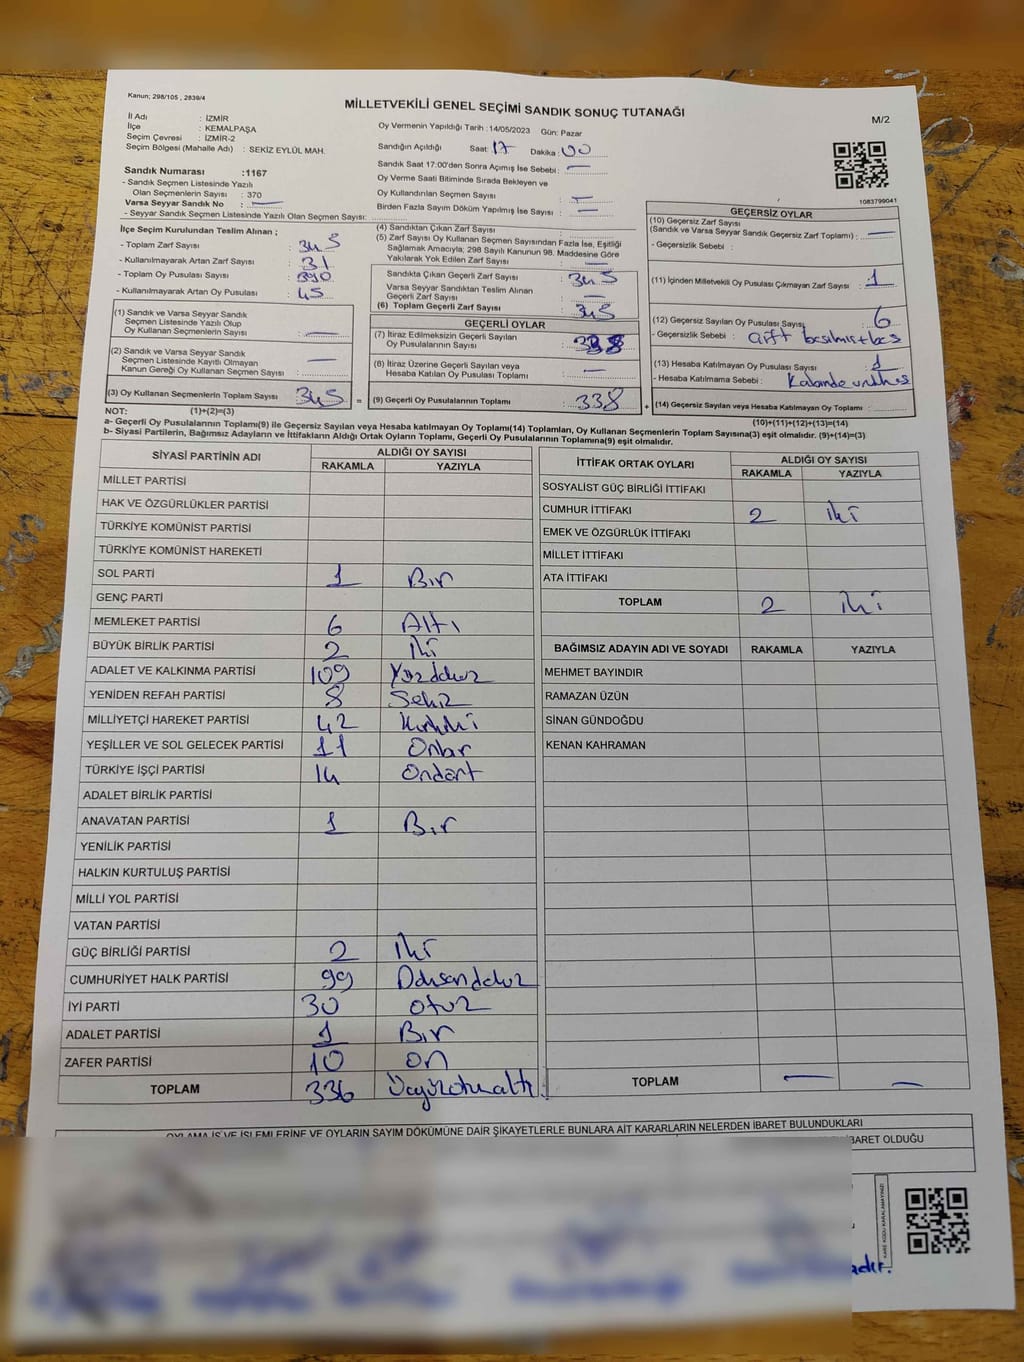 Kanun; 298/105 , 2839/4
MİLLETVEKİLİ GENEL SEÇİMİ SANDIK SONUÇ TUTANAĞI
M/2
İl Adı : İZMİR
İlçe : KEMALPAŞA
Seçim Çevresi : İZMİR-2
Seçim Bölgesi (Mahalle Adı) : SEKİZ EYLÜL MAH.
Oy Vermenin Yapıldığı Tarih : 14/05/2023 Gün: Pazar
Sandığın Açıldığı Saat : 17 Dakika : 00
Sandık Saat 17:00'den Sonra Açımış İse Sebebi : —
Oy Verme Saati Bitiminde Sırada Bekleyen ve
Oy Kullandırılan Seçmen Sayısı : —
Birden Fazla Sayım Döküm Yapılmış İse Sayısı : —
1083799041
Sandık Numarası :1167
- Sandık Seçmen Listesinde Yazılı
Olan Seçmenlerin Sayısı : 370
Varsa Seyyar Sandık No : —
- Seyyar Sandık Seçmen Listesinde Yazılı Olan Seçmen Sayısı:
İlçe Seçim Kurulundan Teslim Alınan ;
- Toplam Zarf Sayısı :
- Kullanılmayarak Artan Zarf Sayısı : 31
- Toplam Oy Pusulası Sayısı : 390
- Kullanılmayarak Artan Oy Pusulası : 45
(1) Sandık ve Varsa Seyyar Sandık
Seçmen Listesinde Yazılı Olup
Oy Kullanan Seçmenlerin Sayısı : —
(2) Sandık ve Varsa Seyyar Sandık
Seçmen Listesinde Kayıtlı Olmayan
Kanun Gereği Oy Kullanan Seçmen Sayısı : —
(3) Oy Kullanan Seçmenlerin Toplam Sayısı : 345 =
(4) Sandıktan Çıkan Zarf Sayısı :
(5) Zarf Sayısı Oy Kullanan Seçmen Sayısından Fazla İse, Eşitliği
Sağlamak Amacıyla, 298 Sayılı Kanunun 98. Maddesine Göre
Yakılarak Yok Edilen Zarf Sayısı : —
Sandıkta Çıkan Geçerli Zarf Sayısı : 345
Varsa Seyyar Sandıktan Teslim Alınan
Geçerli Zarf Sayısı : —
(6) Toplam Geçerli Zarf Sayısı : 345
GEÇERLİ OYLAR
(7) İtiraz Edilmeksizin Geçerli Sayılan
Oy Pusulalarının Sayısı : 338
(8) İtiraz Üzerine Geçerli Sayılan veya
Hesaba Katılan Oy Pusulası Toplamı : —
(9) Geçerli Oy Pusulalarının Toplamı : 338 +
GEÇERSİZ OYLAR
(10) Geçersiz Zarf Sayısı
(Sandık ve Varsa Seyyar Sandık Geçersiz Zarf Toplamı) : —
- Geçersizlik Sebebi :
(11) İçinden Milletvekili Oy Pusulası Çıkmayan Zarf Sayısı : 1
(12) Geçersiz Sayılan Oy Pusulası Sayısı : 6
- Geçersizlik Sebebi : çift basılmış+boş
(13) Hesaba Katılmayan Oy Pusulası Sayısı : 1
- Hesaba Katılmama Sebebi : Kabinde
(14) Geçersiz Sayılan veya Hesaba Katılmayan Oy Toplamı :
NOT: (1)+(2)=(3) (10)+(11)+(12)+(13)=(14)
a- Geçerli Oy Pusulalarının Toplamı(9) ile Geçersiz Sayılan veya Hesaba Katılmayan Oy Toplamı(14) Toplamları, Oy Kullanan Seçmenlerin Toplam Sayısına(3) eşit olmalıdır. (9)+(14)=(3)
b- Siyasi Partilerin, Bağımsız Adayların ve İttifakların Aldığı Ortak Oyların Toplamı, Geçerli Oy Pusulalarının Toplamına(9) eşit olmalıdır.
SİYASİ PARTİNİN ADI ALDIĞI OY SAYISI
RAKAMLA YAZIYLA
MİLLET PARTİSİ
HAK VE ÖZGÜRLÜKLER PARTİSİ
TÜRKİYE KOMÜNİST PARTİSİ
TÜRKİYE KOMÜNİST HAREKETİ
SOL PARTİ 1 Bir
GENÇ PARTİ
MEMLEKET PARTİSİ 6 Altı
BÜYÜK BİRLİK PARTİSİ 2 İki
ADALET VE KALKINMA PARTİSİ 109 Yüzdokuz
YENİDEN REFAH PARTİSİ 8 Sekiz
MİLLİYETÇİ HAREKET PARTİSİ 42 Kırkiki
YEŞİLLER VE SOL GELECEK PARTİSİ 11 Onbir
TÜRKİYE İŞÇİ PARTİSİ 14 Ondört
ADALET BİRLİK PARTİSİ
ANAVATAN PARTİSİ 1 Bir
YENİLİK PARTİSİ
HALKIN KURTULUŞ PARTİSİ
MİLLİ YOL PARTİSİ
VATAN PARTİSİ
GÜÇ BİRLİĞİ PARTİSİ 2 İki
CUMHURİYET HALK PARTİSİ 99 Doksandokuz
İYİ PARTİ 30 otuz
ADALET PARTİSİ 1 Bir
ZAFER PARTİSİ 10 on
TOPLAM 336 Üçyüzotuzaltı
İTTİFAK ORTAK OYLARI ALDIĞI OY SAYISI
RAKAMLA YAZIYLA
SOSYALİST GÜÇ BİRLİĞİ İTTİFAKI
CUMHUR İTTİFAKI 2 iki
EMEK VE ÖZGÜRLÜK İTTİFAKI
MİLLET İTTİFAKI
ATA İTTİFAKI
TOPLAM 2 iki
BAĞIMSIZ ADAYIN ADI VE SOYADI RAKAMLA YAZIYLA
MEHMET BAYINDIR
RAMAZAN ÜZÜN
SİNAN GÜNDOĞDU
KENAN KAHRAMAN
TOPLAM — —
OYLAMA İŞ VE İŞLEMLERİNE VE OYLARIN SAYIM DÖKÜMÜNE DAİR ŞİKAYETLERLE BUNLARA AİT KARARLARIN NELERDEN İBARET BULUNDUKLARI
İBARET OLDUĞU